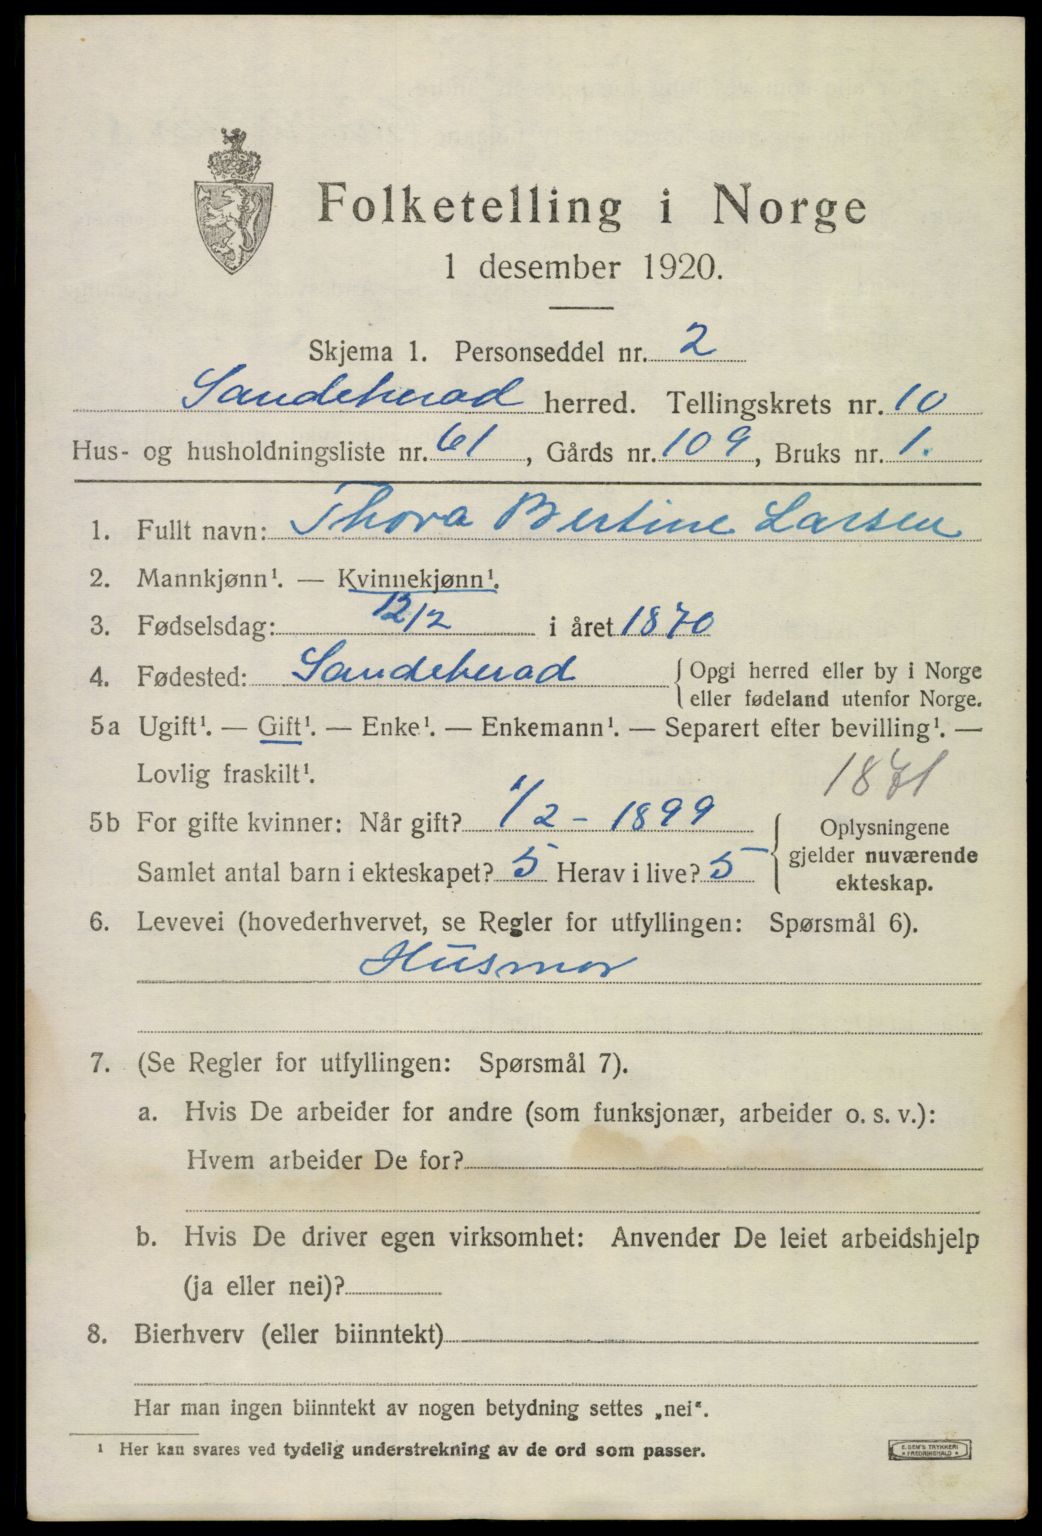 Folketelling i Norge
1 desember 1920.
Skjema 1. Personseddel nr. 2
Sandeherad herred. Tellingskrets nr. 10
Hus- og husholdningsliste nr. 61, Gårds nr. 109, Bruks nr. 1.
1. Fullt navn: Thora Bertine Larsen
2. Mannkjønn¹. — Kvinnekjønn¹.
3. Fødselsdag: 12/2 i året 1870
4. Fødested: Sandeherad { Opgi herred eller by i Norge
eller fødeland utenfor Norge.
5a Ugift¹. — Gift¹. — Enke¹. — Enkemann¹. — Separert efter bevilling¹. —
Lovlig fraskilt¹.
1871
5b For gifte kvinner: Når gift? 1/2 - 1899
Samlet antal barn i ekteskapet? 5 Herav i live? 5
{ Oplysningene
gjelder nuværende
ekteskap.
6. Levevei (hovederhvervet, se Regler for utfyllingen: Spørsmål 6).
Husmor
7. (Se Regler for utfyllingen: Spørsmål 7).
a. Hvis De arbeider for andre (som funksjonær, arbeider o. s. v.):
Hvem arbeider De for?
b. Hvis De driver egen virksomhet: Anvender De leiet arbeidshjelp
(ja eller nei)?
8. Bierhverv (eller biinntekt)
Har man ingen biinntekt av nogen betydning settes „nei".
¹ Her kan svares ved tydelig understrekning av de ord som passer.
E. SEM'S TRYKKERI
FREDRIKSHALD